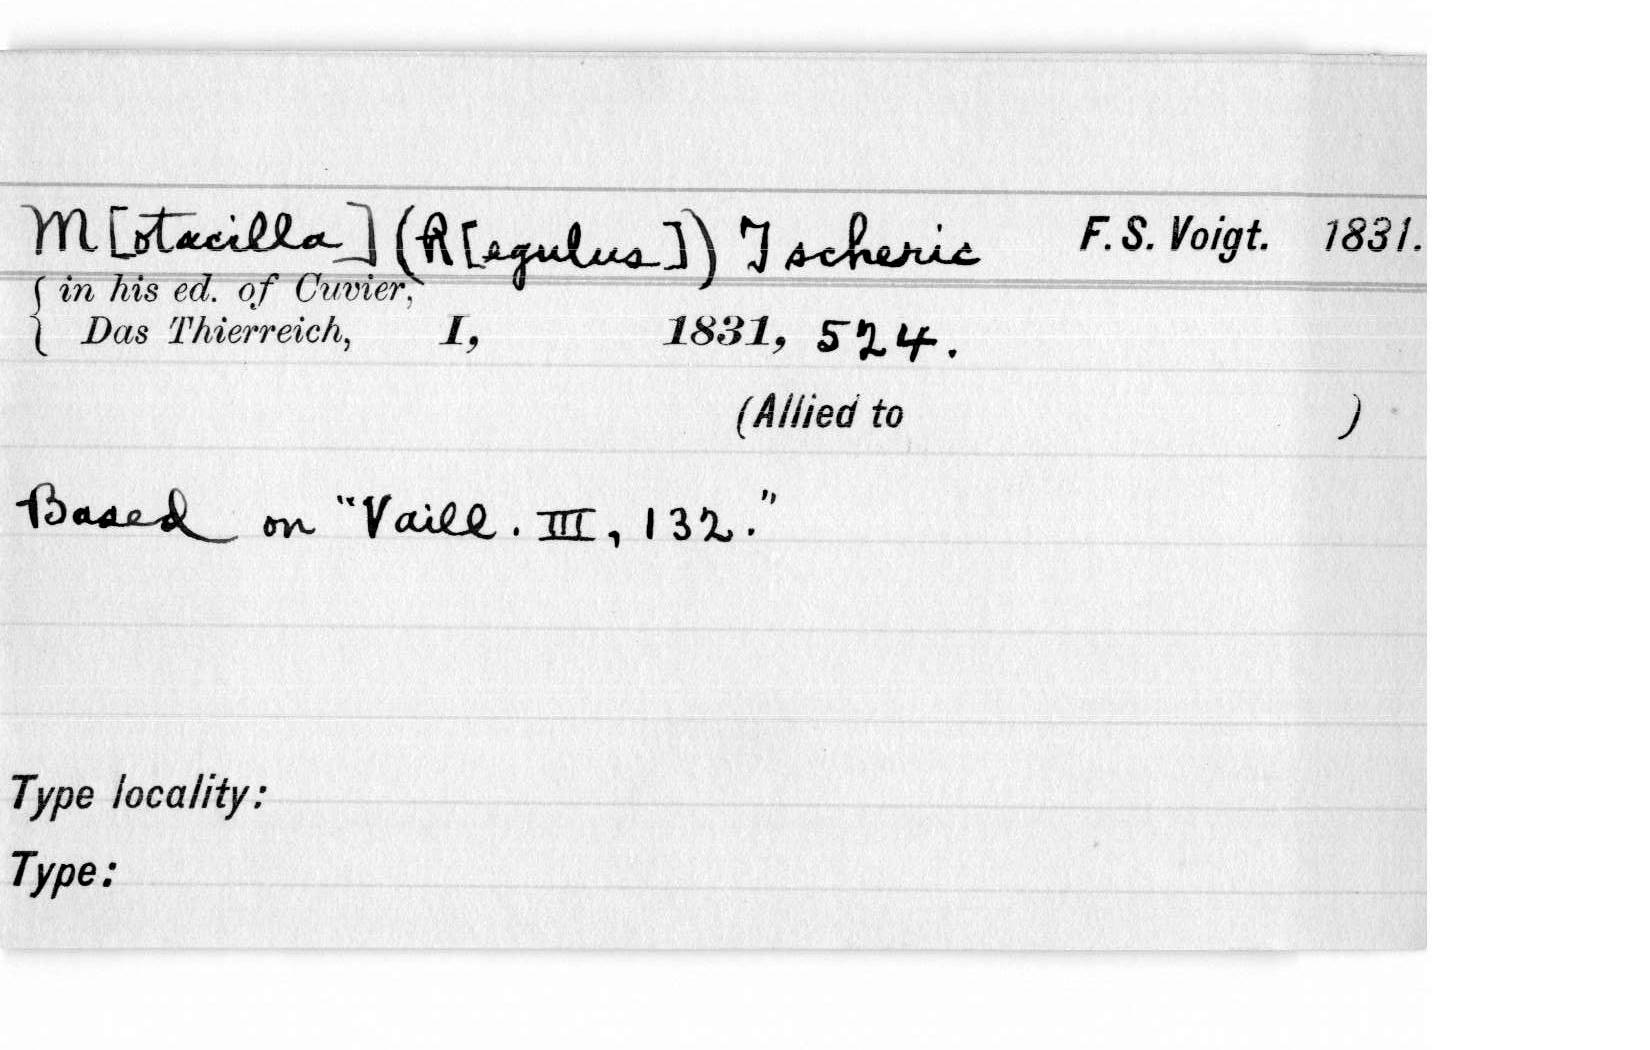 M[otacilla] (R[egulus]) Tscheric F. S. Voigt. 1831.
{ in his ed. of Cuvier,
Das Thierreich, I, 1831, 524.
(Allied to )
Based on "Vaill. III, 132."
Type locality:
Type: